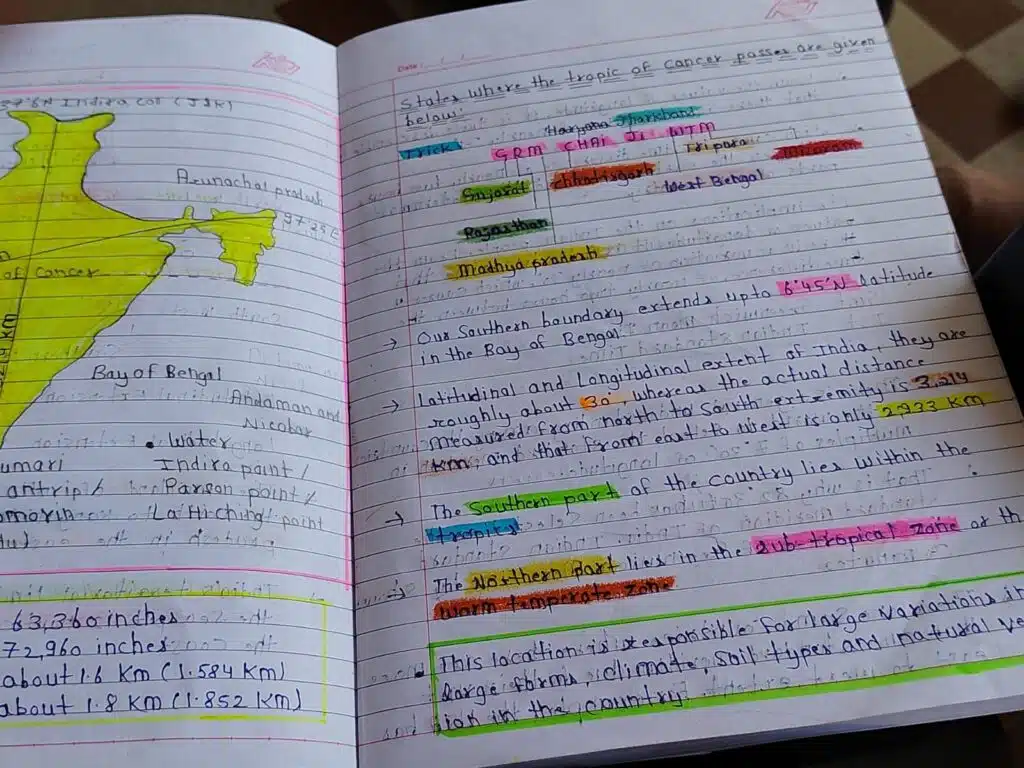 37°6'N Indira Col (J&K)
Arunachal pradesh
97°25'E
of cancer
Bay of Bengal
Andaman and
Nicobar
• Water
umari
Indira point /
Parson point /
La Hiching point
63,360 inches
72,960 inches
about 1.6 Km (1.584 Km)
about 1.8 Km (1.852 Km)
Date:
States where the tropic of cancer passes are given
below:
Haryana Jharkhand
Trick GRM CHAI J1 WTM
Gujarat Chhadisgarh Tripura Mizoram
West Bengal
Rajasthan
Madhya pradesh
→ Our Southern boundary extends upto 6°45'N latitude
in the Bay of Bengal
→ Latitudinal and Longitudinal extent of India, they are
roughly about 30° whereas the actual distance
measured from north to South extremity is 3,214
Km, and that from east to west is only 2,933 Km
→ The Southern part of the country lies within the
tropics
→ The Northern part lies in the sub-tropical zone or th
warm temperate zone
This location is responsible for large variations in
large forms, climate, soil types and natural ve
ion in the country.